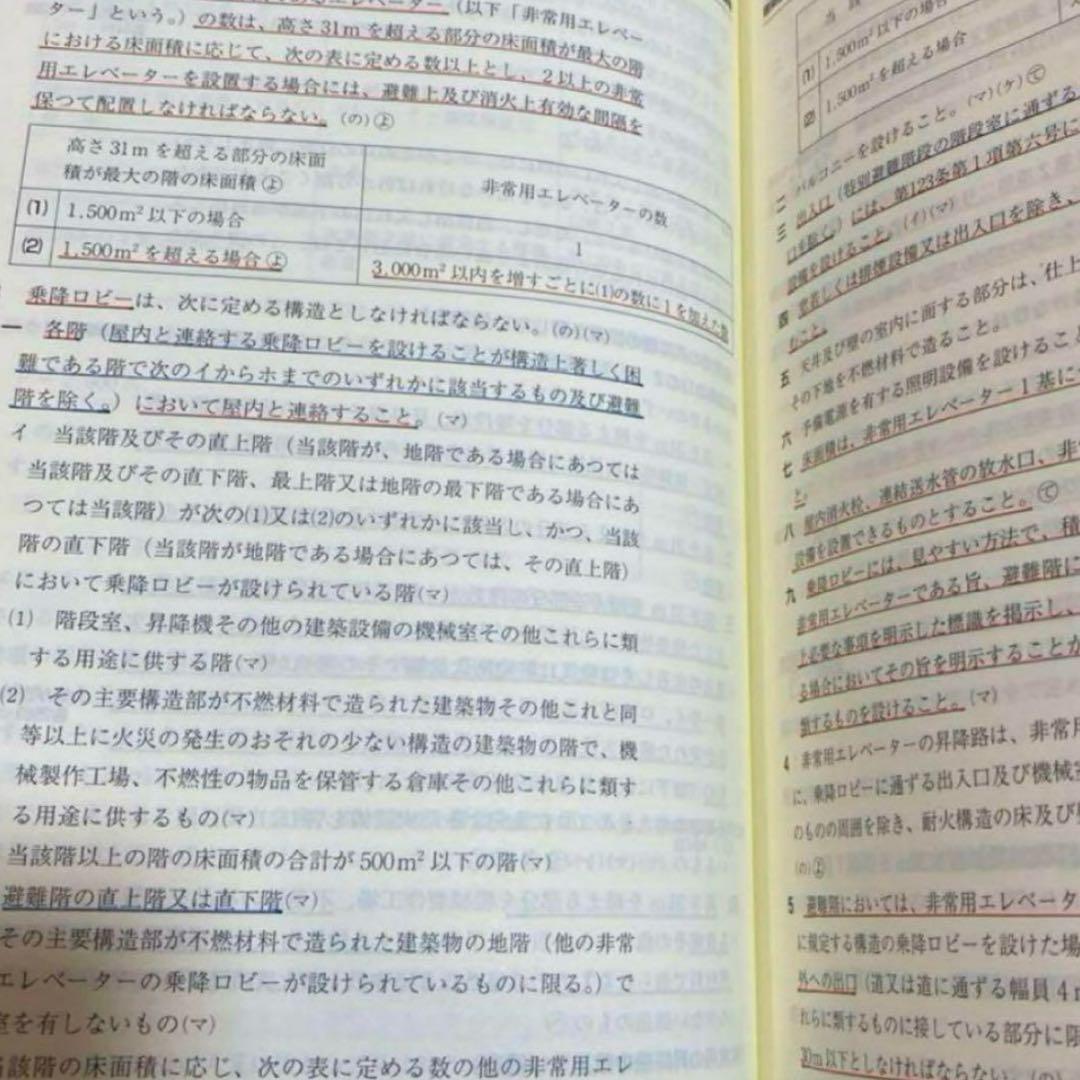 であるエレベーター（以下「非常用エレベー
ター」という。）の数は、高さ31mを超える部分の床面積が最大の階
における床面積に応じて、次の表に定める数以上とし、2以上の非常
用エレベーターを設置する場合には、避難上及び消火上有効な間隔を
保つて配置しなければならない。(の)㋵
高さ31mを超える部分の床面
積が最大の階の床面積㋵
非常用エレベーターの数
(1) 1.500m²以下の場合 1
(2) 1.500m²を超える場合㋵ 3.000m²以内を増すごとに(1)の数に1を加えた数
乗降ロビーは、次に定める構造としなければならない。(の)(マ)
一 各階（屋内と連絡する乗降ロビーを設けることが構造上著しく困
難である階で次のイからホまでのいずれかに該当するもの及び避難
階を除く。）において屋内と連絡すること。(マ)
イ 当該階及びその直上階（当該階が、地階である場合にあつては
当該階及びその直下階、最上階又は地階の最下階である場合にあ
つては当該階）が次の(1)又は(2)のいずれかに該当し、かつ、当該
階の直下階（当該階が地階である場合にあつては、その直上階）
において乗降ロビーが設けられている階(マ)
(1) 階段室、昇降機その他の建築設備の機械室その他これらに類
する用途に供する階(マ)
(2) その主要構造部が不燃材料で造られた建築物その他これと同
等以上に火災の発生のおそれの少ない構造の建築物の階で、機
械製作工場、不燃性の物品を保管する倉庫その他これらに類す
る用途に供するもの(マ)
当該階以上の階の床面積の合計が500m²以下の階(マ)
避難階の直上階又は直下階(マ)
その主要構造部が不燃材料で造られた建築物の地階（他の非常
エレベーターの乗降ロビーが設けられているものに限る。）で
室を有しないもの(マ)
当該階の床面積に応じ、次の表に定める数の他の非常用エレ
(1) 1.500m²以下の場合
(2) 1.500m²を超える場合
二 バルコニーを設けること。(マ)(ケ)㋢
三 出入口（特別避難階段の階段室に通ずる
口を除く。）には、第123条第1項第六号に
設備を設けること。(イ)(マ)
四 窓若しくは排煙設備又は出入口を除き、
おこと。
五 天井及び壁の室内に面する部分は、仕上
その下地を不燃材料で造ること。
六 予備電源を有する照明設備を設けること
七 床面積は、非常用エレベーター1基に
と。
八 屋内消火栓、連結送水管の放水口、非
設備を設置できるものとすること。㋢
九 乗降ロビーには、見やすい方法で、積
非常用エレベーターである旨、避難階に
上必要な事項を明示した標識を掲示し、
る場合においてその旨を明示することが
類するものを設けること。(マ)
4 非常用エレベーターの昇降路は、非常用
に、乗降ロビーに通ずる出入口及び機械室
のものの周囲を除き、耐火構造の床及び
(の)㋵
5 避難階においては、非常用エレベータ
に規定する構造の乗降ロビーを設けた場
外への出口（道又は道に通ずる幅員4m
れらに類するものに接している部分に限
30m以下としなければならない。(の)